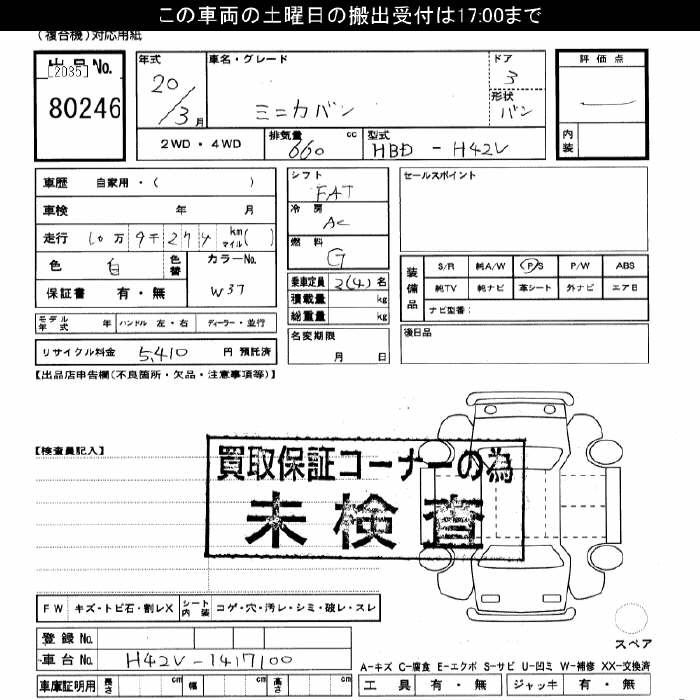 この車両の土曜日の搬出受付は17:00まで
(複合機)対応用紙
出品No.
[2035]
80246
年式
20/3月
車名・グレード
ミニカバン
ドア
3
形状
バン
評価点
内装
2WD・4WD
排気量
660 cc
型式
HBD - H42V
車歴 自家用・( )
車検 年 月
走行 10万 9千 27 km マイル( )
色 白
色替
カラーNo.
W37
保証書 有・無
シフト
FAT
冷房
AC
燃料
G
乗車定員 2(4)名
積載量 kg
総重量 kg
名変期限
月 日
セールスポイント
装備品
S/R 純A/W P/S P/W ABS
純TV 純ナビ 革シート 外ナビ エアB
ナビ型番:
後日品
モデル年式 年 ハンドル 左・右 ディーラー・並行
リサイクル料金 5,410 円 預託済
【出品店申告欄(不良箇所・欠品・注意事項等)】
【検査員記入】
買取保証コーナーの為
未検査
FW キズ・トビ石・割レX シート内装 コゲ・穴・汚レ・シミ・破レ・スレ
登録No.
車台No. H42V-1417100
車庫証明用 長さ cm 幅 cm 高さ cm
スペア
A-キズ C-腐食 E-エクボ S-サビ U-凹ミ W-補修 XX-交換済
工具 有・無 ジャッキ 有・無